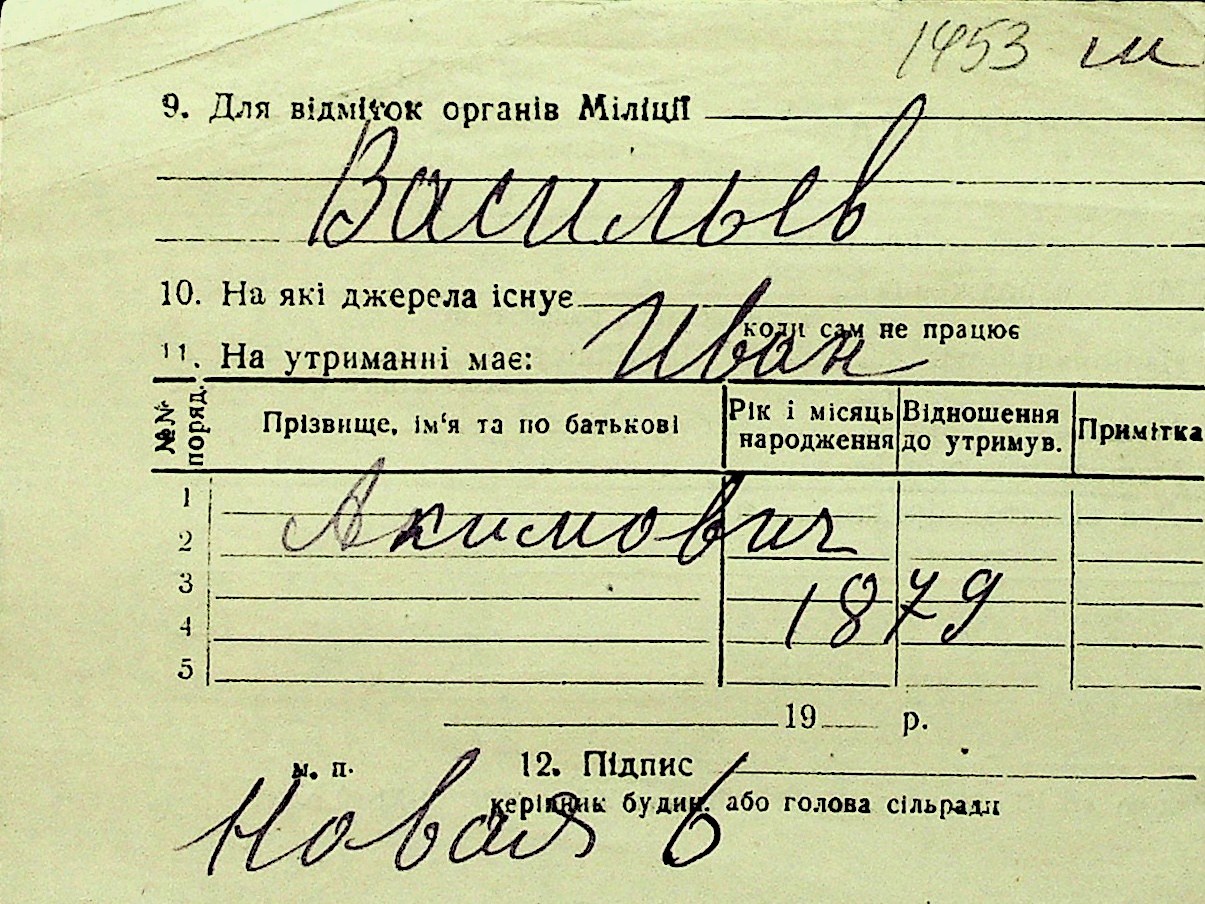 1453 ш
9. Для відміток органів Міліції
Васильев
10. На які джерела існує
коли сам не працює
Иван
11. На утриманні має:
№№ поряд. Прізвище, ім'я та по батькові Рік і місяць народження Відношення до утримув. Примітка
1
Акимович
2
3
1879
4
5
19 р.
м. п. 12. Підпис
керівник будин. або голова сільради
Новая 6